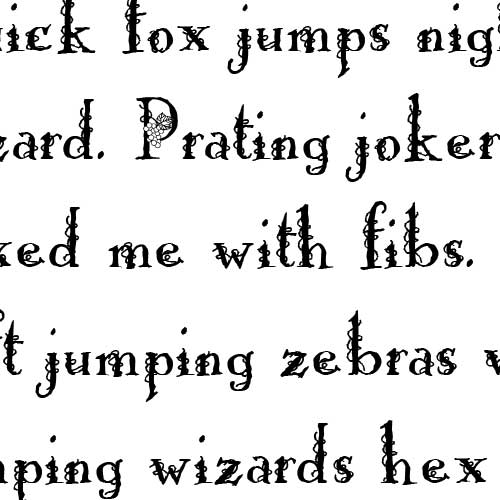 uick fox jumps nigh
zard. Prating joker
xed me with fibs.
ft jumping zebras v
mping wizards hex